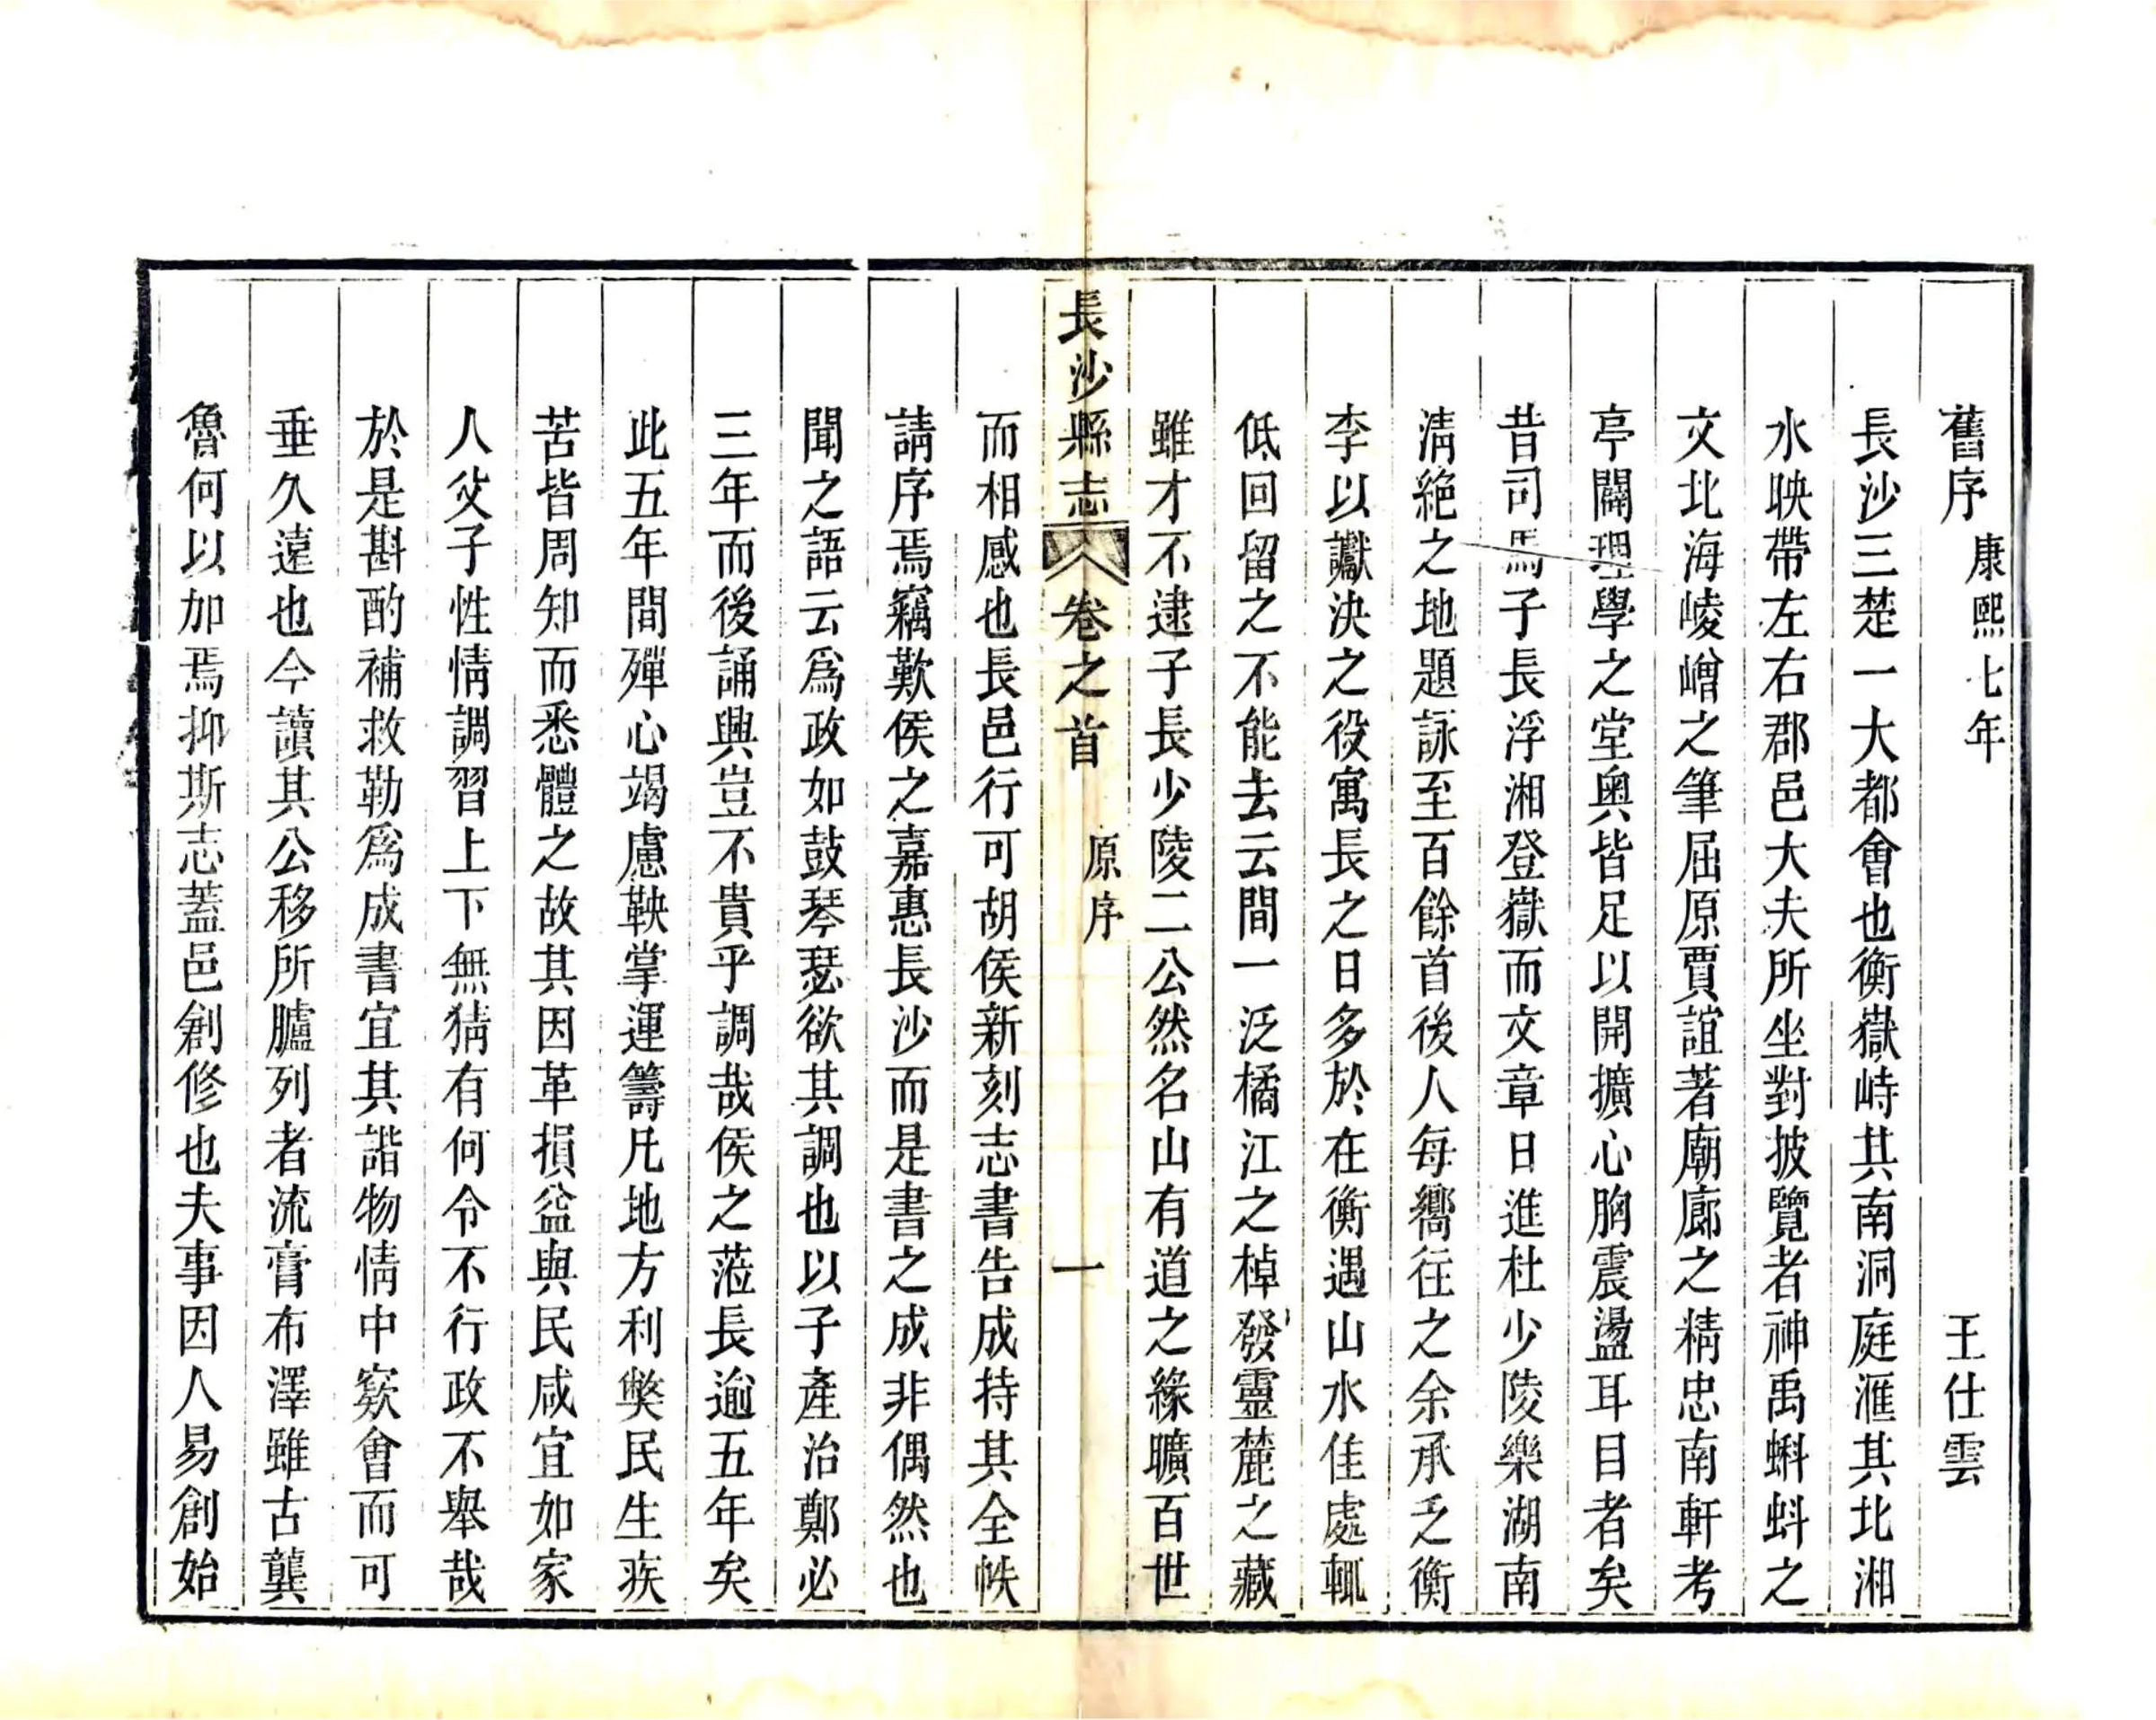 舊序康熙七年 王仕雲
長沙三楚一大都會也衡嶽峙其南洞庭滙其北湘
水映帶左右郡邑大夫所坐對披覽者神禹蝌蚪之
文北海崚嶒之筆屈原賈誼著廟廊之精忠南軒考
亭闢理學之堂奧皆足以開擴心胸震盪耳目者矣
昔司馬子長浮湘登嶽而文章日進杜少陵樂湖南
淸絕之地題詠至百餘首後人每嚮往之余承乏衡
李以讞決之役寓長之日多於在衡遇山水佳處輒
低回留之不能去云間一泛橘江之棹發靈麓之藏
雖才不逮子長少陵二公然名山有道之緣曠百世
長沙縣志 卷之首 原序 一
而相感也長邑行可胡侯新刻志書告成持其全帙
請序焉竊歎侯之嘉惠長沙而是書之成非偶然也
聞之語云爲政如鼓琴瑟欲其調也以子產治鄭必
三年而後誦興豈不貴乎調哉侯之蒞長逾五年矣
此五年間殫心竭慮鞅掌運籌凡地方利獘民生疾
苦皆周知而悉體之故其因革損益與民咸宜如家
人父子性情調習上下無猜有何令不行政不舉哉
於是斟酌補救勒爲成書宜其諧物情中窾會而可
垂久遠也今讀其公移所臚列者流膏布澤雖古龔
魯何以加焉抑斯志蓋邑創修也夫事因人易創始